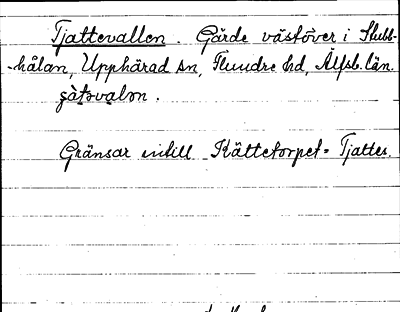 Tjattevallen. Gärde västöver i Stubb-
hålan, Upphärad sn, Flundre hd, Älfsb. län.
Gränsar intill Kättetorpet = Tjattes.